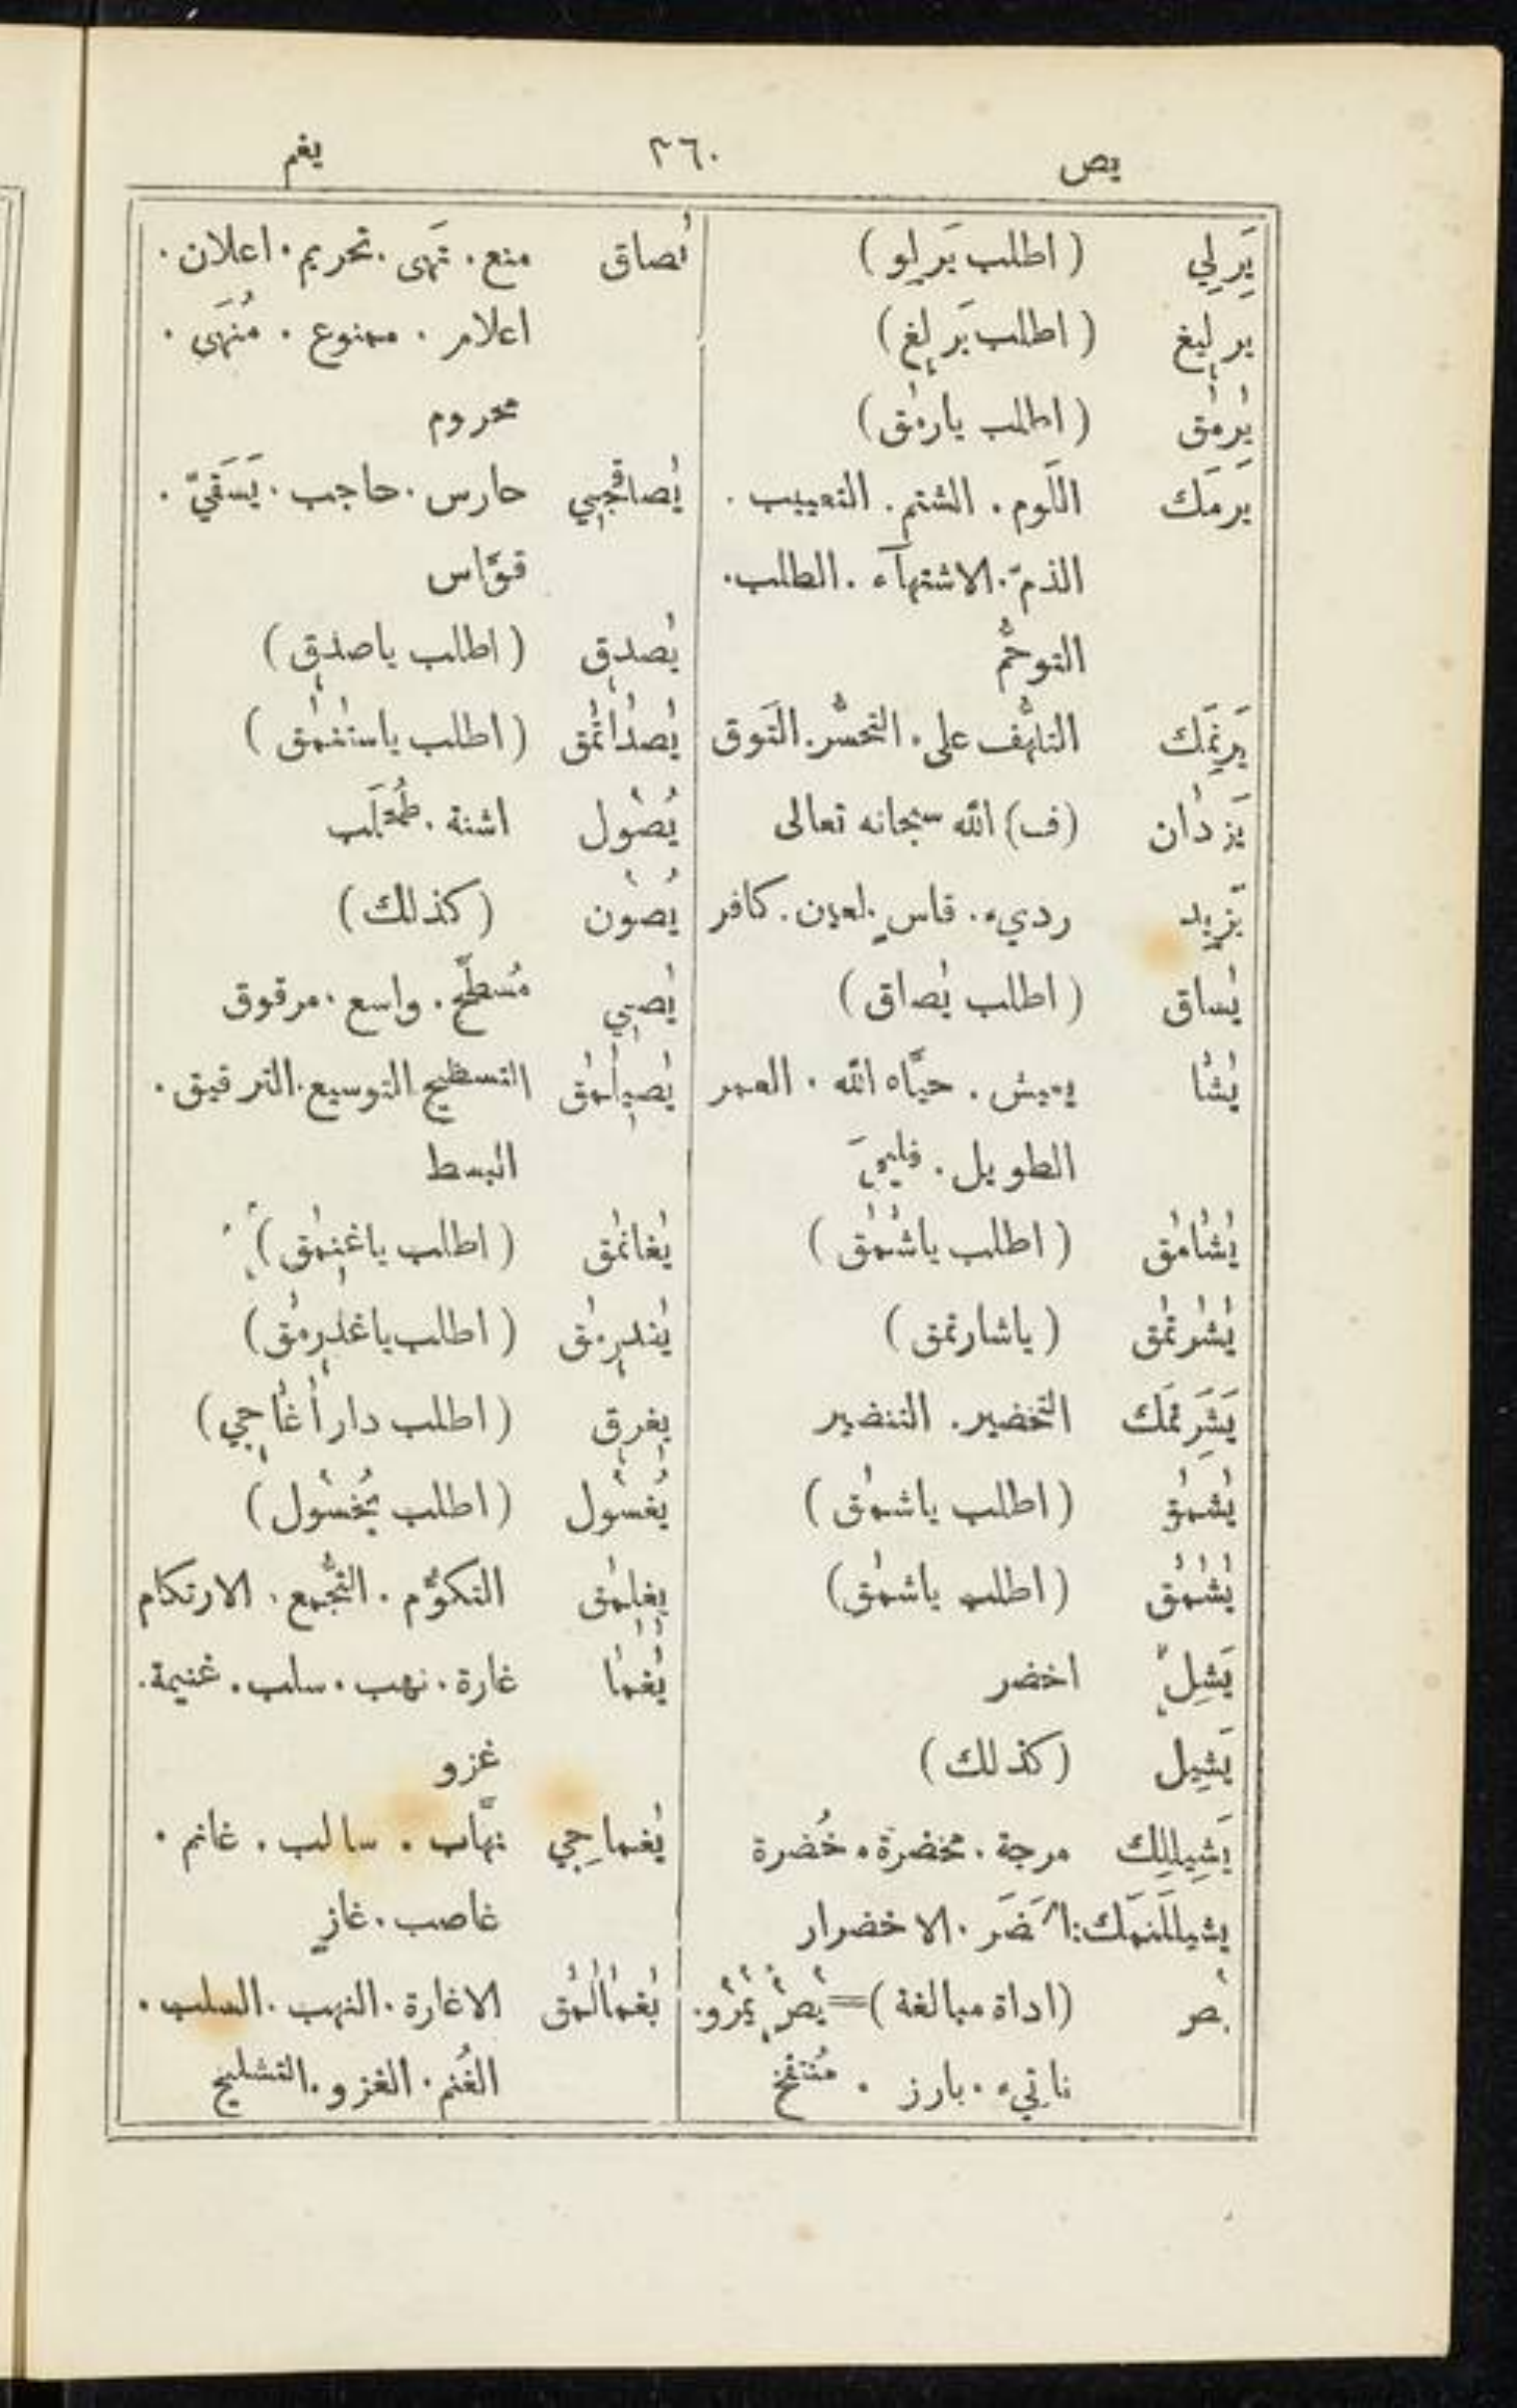 يص ٣٦٠ يغم
يَرلي (اطلب يَرلو)
يرليغ (اطلب يَرلغ)
يرمق (اطلب يارمق)
يَرمَك اللَوم. الشتم. التعييب.
الذمّ. الاشتهآء. الطلب.
التوحُّم
يَرِنمَك التلهُّف على. التحسُّر. التَوق
يَزدان (ف) الله سبحانه تعالى
يَزيد رديء. قاسٍ. لعين. كافر
يساق (اطلب يصاق)
يشا يعيش. حيَّاه الله. العمر
الطويل. فليحيَ
يشامق (اطلب ياشمق)
يشرتمق (ياشارتمق)
يَشَرتمَك التخضير. التنضير
يشمق (اطلب ياشمق)
يشمق (اطلب ياشمق)
يَشِل اخضر
يَشِيل (كذلك)
يَشِيللِك مرجة. مخضرة. خُضرة
يشيللَنمَك: الاخضرار
يصر (اداة مبالغة) = يصر يمرو.
ناتِيء. بارز. مُنتفخ
يصاق منع. نَهى. تحريم. اعلان.
اعلام. ممنوع. مُنهَى.
محروم
يصاقجي حارس. حاجب. يَسَقيّ.
قوَّاس
يصدق (اطلب ياصدق)
يصداتمق (اطلب ياستنمق)
يُصول اشنة. طُحلَب
يُصون (كذلك)
يصي مُسطَّح. واسع. مرقوق
يصيلمق التسطيح. التوسيع. الترقيق.
البسط
يغانمق (اطلب ياغنمق)
يغدرمق (اطلب ياغدرمق)
يغرق (اطلب دار أغاجي)
يُغسول (اطلب يُخسول)
يغلمق التكوُّم. التجُّمع. الارتكام
يغما غارة. نهب. سلب. غنيمة.
غزو
يغماجِي نهَّاب. سالب. غانم.
غاصب. غازٍ
يغمالمق الاغارة. النهب. السلب.
الغُنم. الغزو. التشليح